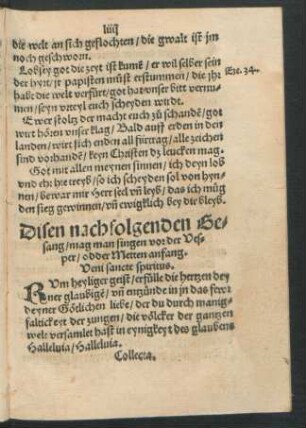 die welt an sich geflochten / die gwalt ist jm
noch geschworn.
Lob sey got die zeyt ist kumē / er wil selber sein
der hyrt / jr papisten müst erstummen / die jhr
habt die welt verfürt / got hat vnser bitt vernu-
men / seyn vrteyl euch scheyden wirdt.
Eze. 34.
Ewer stoltz der macht euch zů schandē / got
wirt hören vnser klag / Bald auff erden in den
landen / wirt sich enden all fürtrag / alle zeichen
sind vorhandē / keyn Christen dz leucken mag.
Got mit allen meynen sinnen / ich deyn lob
vnd ehr hie treyb / so ich scheyden sol von hyn-
nen / bewar mir Herr seel vñ leyb / das ich müg
den sieg gewinnen / vñ ewigklich bey die bleyb.
Disen nachfolgenden Ge-
sang / mag man singen vor der Ves-
per / odder Metten anfang.
Veni sancte spiritus.
KVm heyliger geist / erfülle die hertzen dey
ner glaubigē / vñ entzünde in jn das fewr
deyner Götlichen liebe / der du durch manig-
faltickeyt der zungen / die völcker der gantzen
welt versamlet hast in eynigkeyt des glaubens
Halleluia / Halleluia.
Collecta.